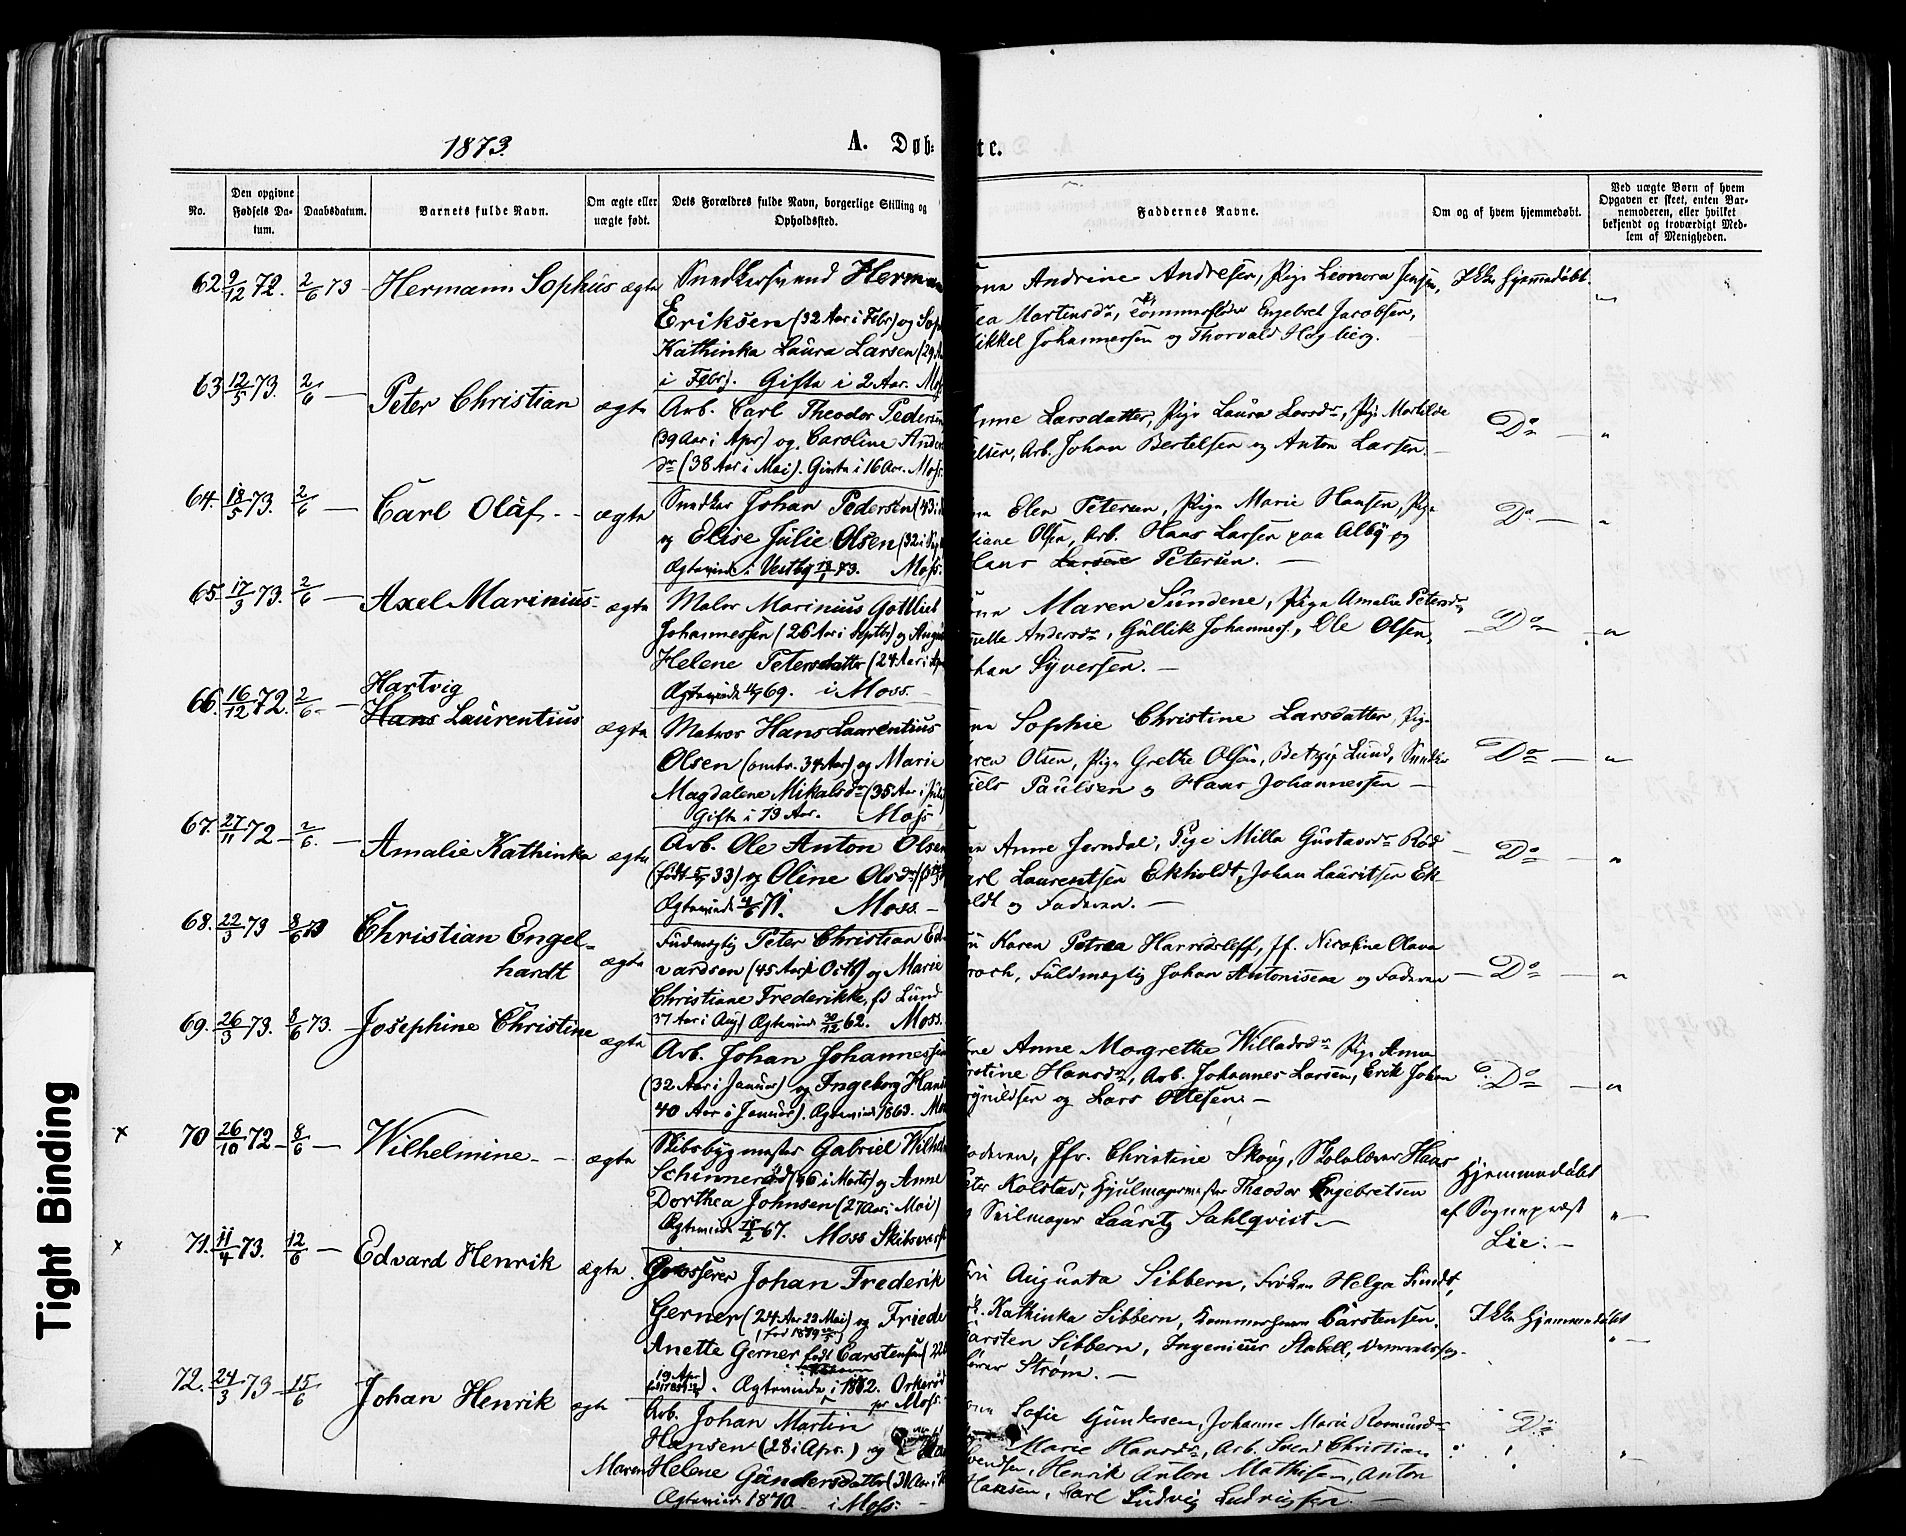 1873.
A. Døb-
te.
No.
Den opgivne Fødsels Da-tum.
Daabsdatum.
Barnets fulde Navn.
Om ægte eller uægte født.
Dets Forældres fulde Navn, borgerlige Stilling og Opholdssted.
Faddernes Navne.
Om og af hvem hjemmedøbt.
Ved uægte Børn af hvem Opgaven er skeet, enten Bar-nemoderen, eller hvilket bekjendt og troværdigt Med-lem af Menigheden.
62 9/12 72. 2/6 73 Hermann Sophus ægte Snedkersvend Herman
Eriksen (32 Aar i Febr) og
Kathinka Laura Larsen (29
i Febr). Gifte i 2 Aar.
Andrine Andresen, Pige Leonora Jensen, Ikke hjemmedøbt. "
Martinsdr, Tømmerfløder Engebret Jacobsen,
Mikkel Johannessen og Thorvald Høgberg.
63 12/5 73. 2/6 — Peter Christian ægte Arb. Carl Theodor Pedersen
(39 Aar i Apr) og Caroline Anders
dr (38 Aar i Mai). Givte i 16 Aar. Moss.
Anne Larsdatter, Pige Laura Larsdr, Pige Mathilde Do — "
Arb. Johan Bertelsen og Anton Larsen. —
64. 18/5 73. 2/6 — Carl Olaf. - ægte Snedker Johan Pedersen (43
og Elise Julie Olsen (32 i
Ægtevied i Vestby 73. Moss.
Elen Petersen, Pige Marie Hansen, Pige Do — "
Olsen, Arb. Hans Larsen paa Alby og
Hans Larsen Petersen. —
65. 17/3 73. 2/6 — Axel Marinius - ægte Maler Marinius Gottlieb
Johannessen (26 Aar i Septbr) og
Helene Petersdatter (24 Aar i
Ægteviede 69. i Moss. —
Maren Sundene, Pige Amalie Petersdr, — Do — "
Andersdr, Gullik Johanness., Ole Olsen,
Johan Syversen. —
66. 16/12 72. 2/6 - — Hartvig
Hans Laurentius ægte Matros Hans Laurentius
Olsen (omtr. 34 Aar) og Marie
Magdalene Mikalsdr (35 Aar i
Gifte i 13 Aar. Moss
Sophie Christine Larsdatter, Pige
Olsen, Pige Grethe Olsen, Betzy Lund, Snedker Do — "
Niels Paulsen og Hans Johannessen —
67. 27/11 72 - 2/6. — Amalie Kathinka ægte Arb. Ole Anton Olsen
(født 33) og Oline Olsdr
Ægteviede 71. Moss. —
Anne Jerndal, Pige Milla Gustavsdr Rød — Do — "
Carl Laurentsen Ekholdt, Johan Lauritsen Ek-
holdt og Faderen. —
68. 22/3 73 8/6 73 Christian Engel-
hardt ægte Fuldmegtig Peter Christian Ed-
vardsen (45 Aar i Octb) og Marie
Christiane Frederikke, fd Lund
37 Aar i Aug) Ægteviede 30/12 62. Moss.
Karen Petrea Harridsleff, Jf. Nicoline Olava
Fuldmegtig Johan Antonisen og Faderen — Do — "
69. 26/3 73. 8/6 73. Josephine Christine ægte Arb. Johan Johannessen
(32 Aar i Januar) og Ingeborg Hans
40 Aar i Januar). Ægteviede 1863.
Anne Margrethe Willadsdr Pige Anna
Hansdr, Arb. Johannes Larsen, Erik Johan Do — "
og Lars Ottesen. —
x 70 26/10 72 - 8/6 — Wilhelmine. - ægte Skibsbygmester Gabriel Wilhelm
Schinnerød (46 i Marts) og Anne
Dorthea Johnsen (27 Aar i Mai)
Ægteviede 67. Moss Skibsverft
Faderen, Jfr. Christine Skoug, Skolelærer Hans
Kolstad, Hjulmagermester Theodor Engebretsen
Seilmager Lauritz Sahlqvist. —
Hjemmedøbt
af Sogneprest "
Lie. —
x 71. 11/4 73. 12/6 — Edvard Henrik ægte. Grosserer Johan Frederik
Gerner (24 Aar 22 Mai) og
Anette Gerner født Carstensen
Ægteviede i 1872. Orkerød
pr Moss.
Augusta Sibbern, Frøken Helga Sindt,
Kathinka Sibbern, Kammerherre Carstensen. Ikke hjemmedøbt
Carsten Sibbern, Ingenieur Stabell, "
Strøm. —
72. 24/3 73 - 15/6 Johan Henrik ægte Arb. Johan Martin
Hansen (28 i Apr.) og
Maren Helene Gundersdatter
Ægteviede 1870 — i Moss. —
Sofie Gundersen, Johanne Marie Rasmusdr Do
Marie Hansdr, Arb. Svend Christian "
Svendsen, Henrik Anton Mathisen, Anton
Hansen, Carl Ludvig Ludvigsen. —
Tight Binding